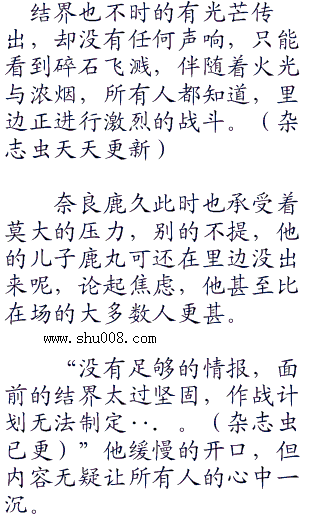 结界也不时的有光芒传
出，却没有任何声响，只能
看到碎石飞溅，伴随着火光
与浓烟，所有人都知道，里
边正进行激烈的战斗。（杂
志虫天天更新）
奈良鹿久此时也承受着
莫大的压力，别的不提，他
的儿子鹿丸可还在里边没出
来呢，论起焦虑，他甚至比
在场的大多数人更甚。
www.shu008.com
“没有足够的情报，面
前的结界太过坚固，作战计
划无法制定··· 。（杂志虫
已更）”他缓慢的开口，但
内容无疑让所有人的心中一
沉。